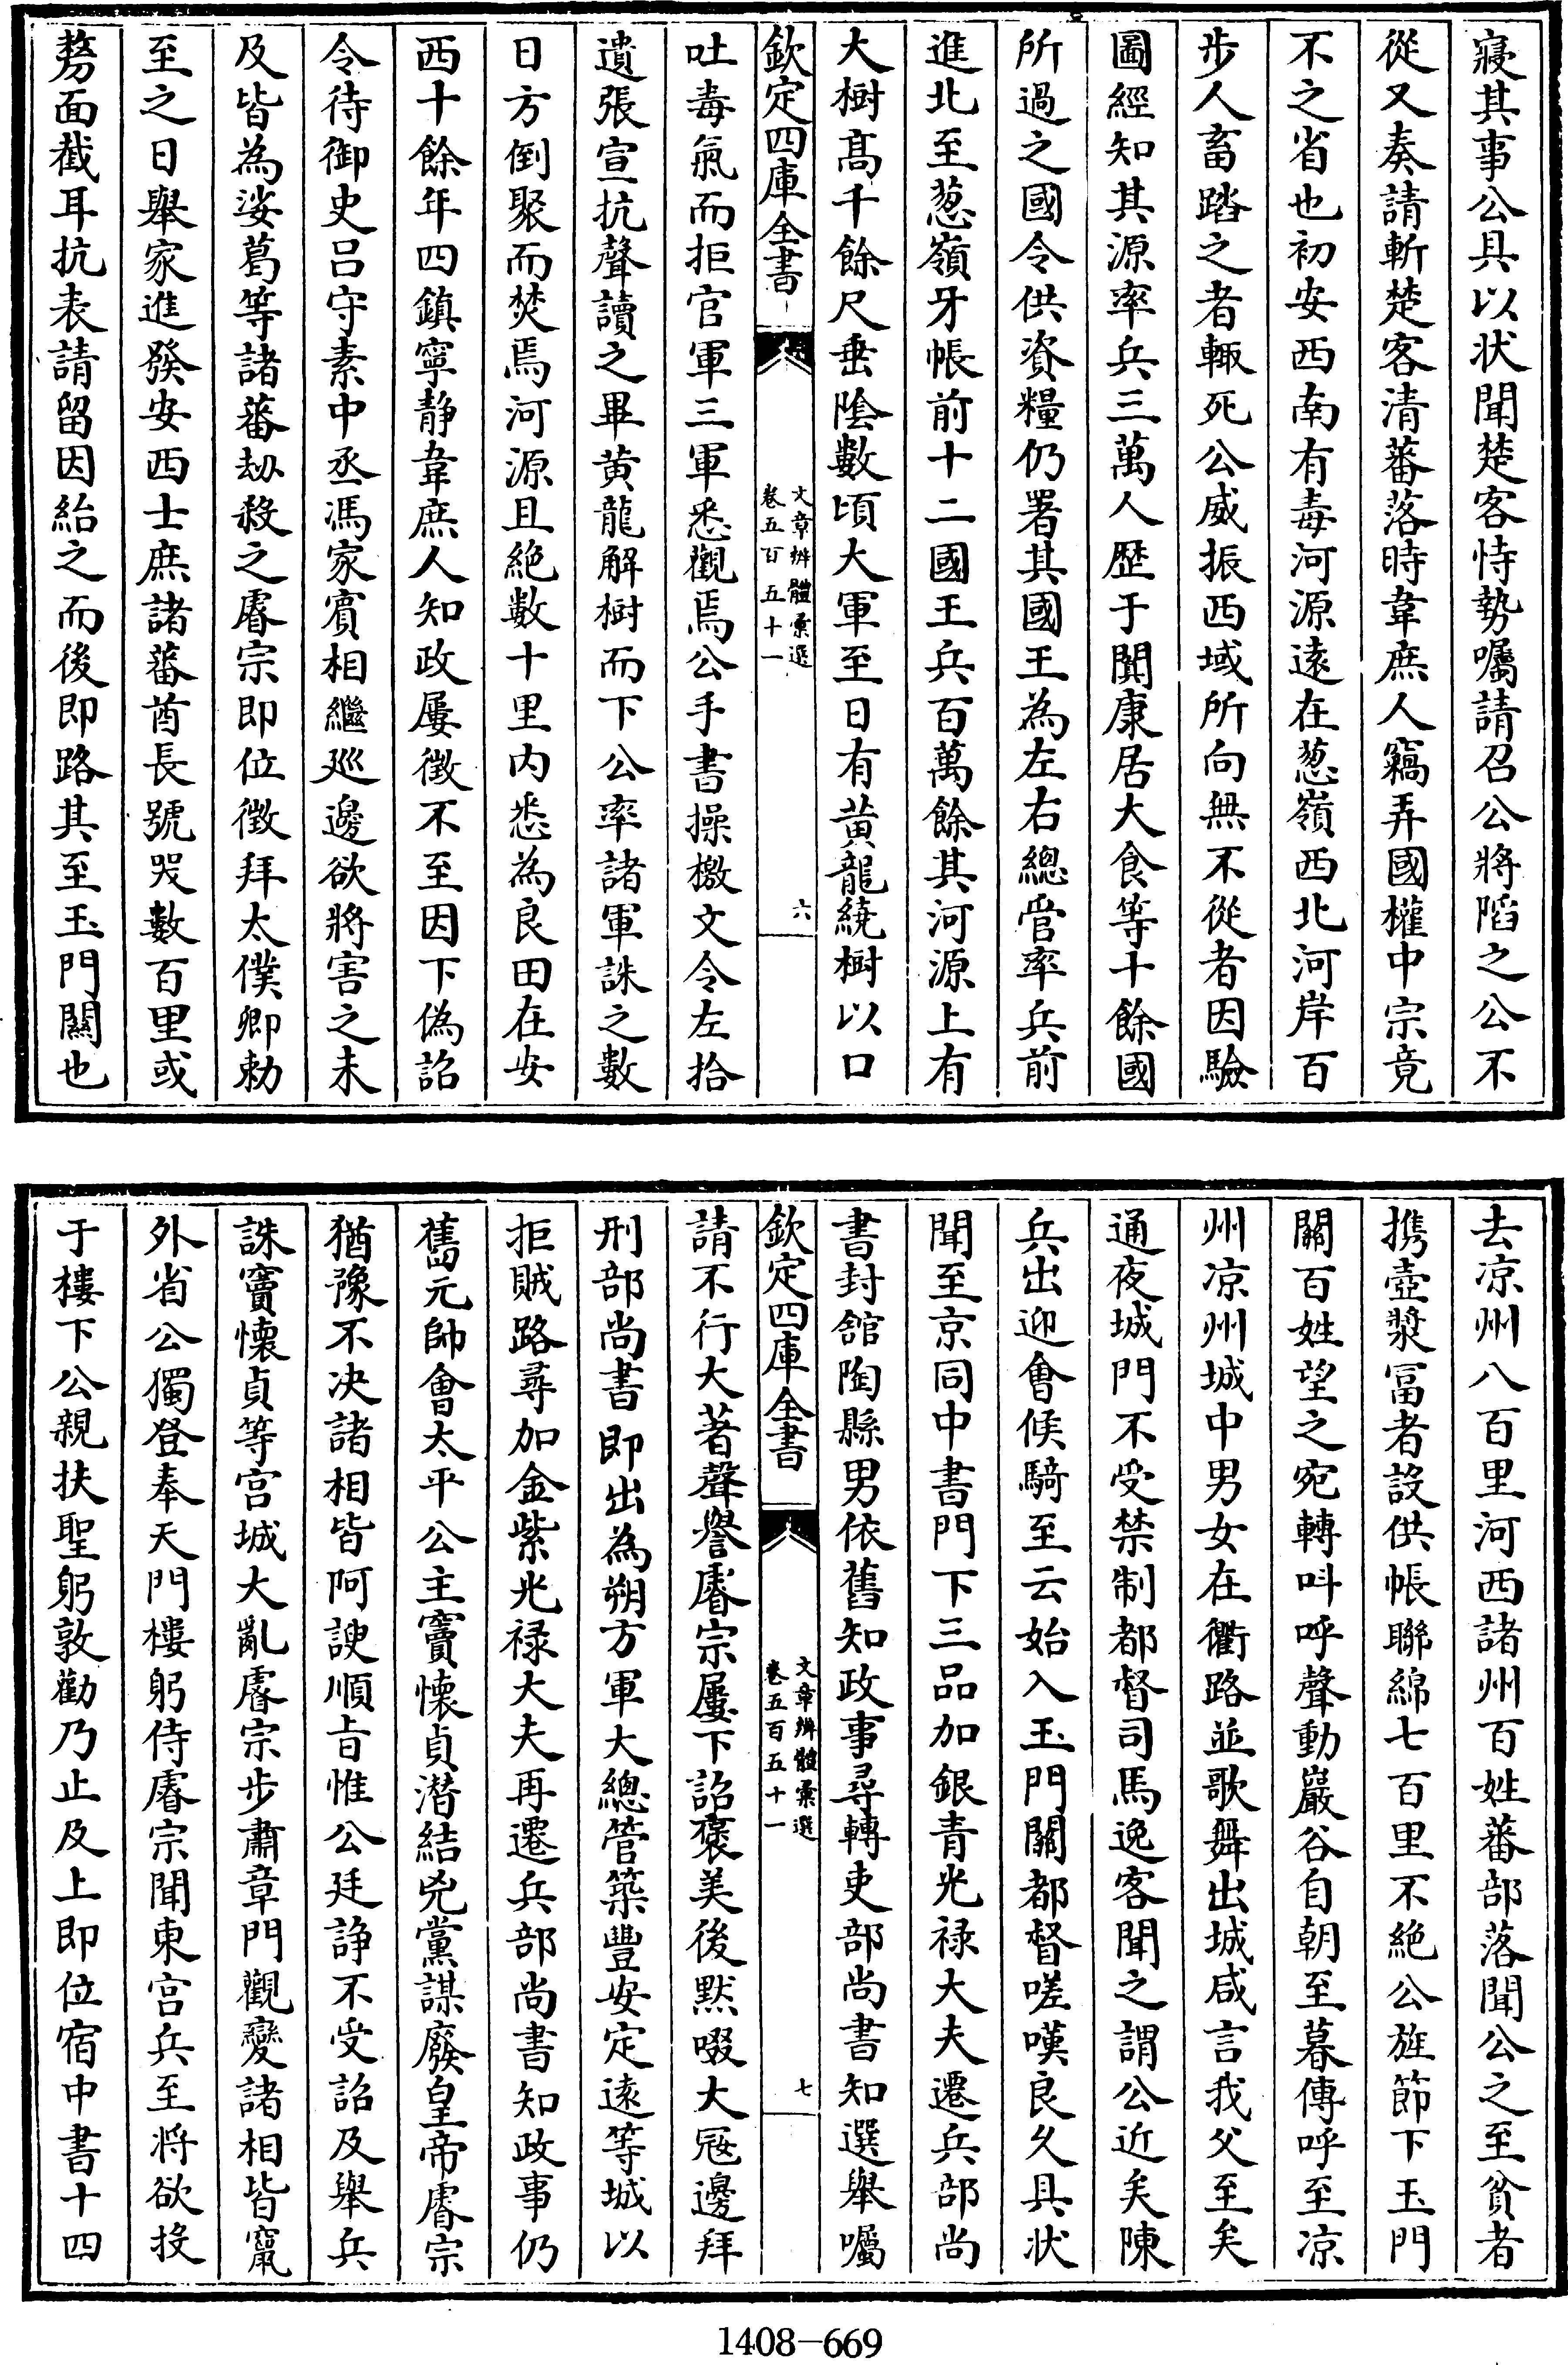 寢其事公具以狀聞楚客恃勢囑請召公將陷之公不
從又奏請斬楚客清蕃落時韋庶人竊弄國權中宗竟
不之省也初安西南有毒河源遠在葱嶺西北河岸百
步人畜踏之者輒死公威振西域所向無不從者因驗
圖經知其源率兵三萬人歷于闐康居大食等十餘國
所過之國令供資糧仍署其國王為左右總管率兵前
進北至葱嶺牙帳前十二國王兵百萬餘其河源上有
大樹高千餘尺垂陰數頃大軍至日有黃龍繞樹以口
欽定四庫全書
文章辨體彙選
卷五百五十一
六
吐毒氣而拒官軍三軍悉觀焉公手書操檄文令左拾
遺張宣抗聲讀之畢黃龍解樹而下公率諸軍誅之數
日方倒聚而焚焉河源且絶數十里内悉為良田在安
西十餘年四鎮寧静韋庶人知政屢徵不至因下偽詔
令待御史吕守素中丞馮家賓相繼廵邊欲將害之未
及皆為娑葛等諸蕃刼殺之睿宗即位徵拜太僕卿勅
至之日舉家進發安西士庶諸蕃酋長號哭數百里或
剺面截耳抗表請留因紿之而後即路其至玉門關也
去凉州八百里河西諸州百姓蕃部落聞公之至貧者
携壺漿冨者設供帳聯綿七百里不絶公旌節下玉門
關百姓望之宛轉呌呼聲動巖谷自朝至暮傳呼至凉
州凉州城中男女在衢路並歌舞出城咸言我父至矣
通夜城門不受禁制都督司馬逸客聞之謂公近矣陳
兵出迎會候騎至云始入玉門關都督嗟嘆良久具狀
聞至京同中書門下三品加銀青光禄大夫遷兵部尚
書封舘陶縣男依舊知政事尋轉吏部尚書知選舉囑
欽定四庫全書
文章辨體彙選
卷五百五十一
七
請不行大著聲譽睿宗屢下詔褒美後默啜大冦邊拜
刑部尚書即出為朔方軍大總管築豐安定逺等城以
拒賊路尋加金紫光禄大夫再遷兵部尚書知政事仍
舊元帥會太平公主竇懷貞潛結兇黨謀廢皇帝睿宗
猶豫不决諸相皆阿諛順旨惟公廷諍不受詔及舉兵
誅竇懷貞等宫城大亂睿宗步肅章門觀變諸相皆竄
外省公獨登奉天門樓躬侍睿宗聞東宫兵至將欲投
于樓下公親扶聖躬敦勸乃止及上即位宿中書十四
1408—669